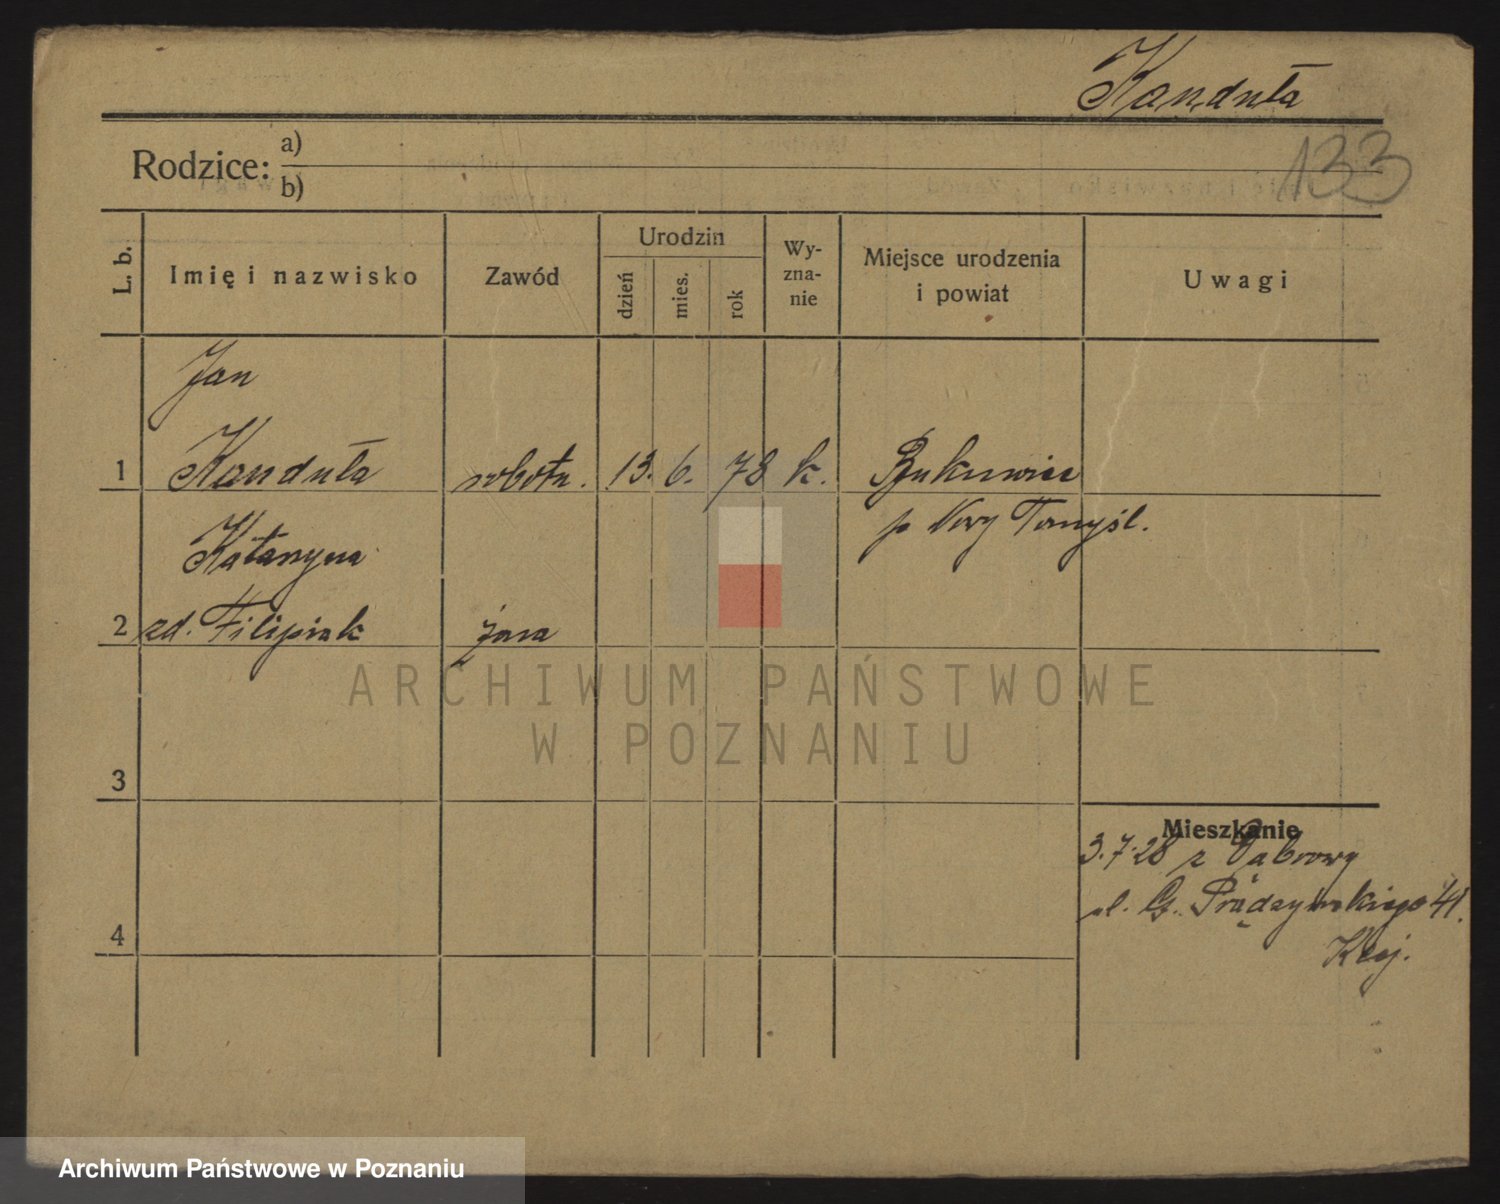 Kanduła
133
Rodzice: a)
b)
L. b.
Imię i nazwisko
Zawód
Urodzin
dzień
mies.
rok
Wy-
zna-
nie
Miejsce urodzenia
i powiat
Uwagi
Jan
1 Kanduła robotn. 13. 6. 78 k. Bukowiec
p Nowy Tomyśl.
Katarzyna
2 zd. Filipiak żona
ARCHIWUM PAŃSTWOWE
W POZNANIU
3
Mieszkanie
3.7.28 z Dąbrowy
ul. G. Prądzyńskiego 41.
4
Archiwum Państwowe w Poznaniu